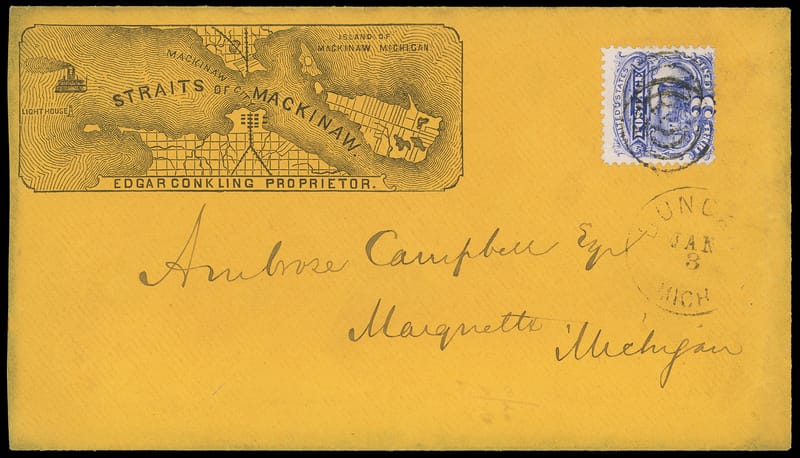 ISLAND OF
MACKINAW MICHIGAN
MACKINAW CITY
STRAITS OF MACKINAW.
LIGHT HOUSE
EDGAR CONKLING PROPRIETOR.
UNITED STATES
POSTAGE
JAN
3
MICH
Ambrose Campbell Esq
Marquette Michigan